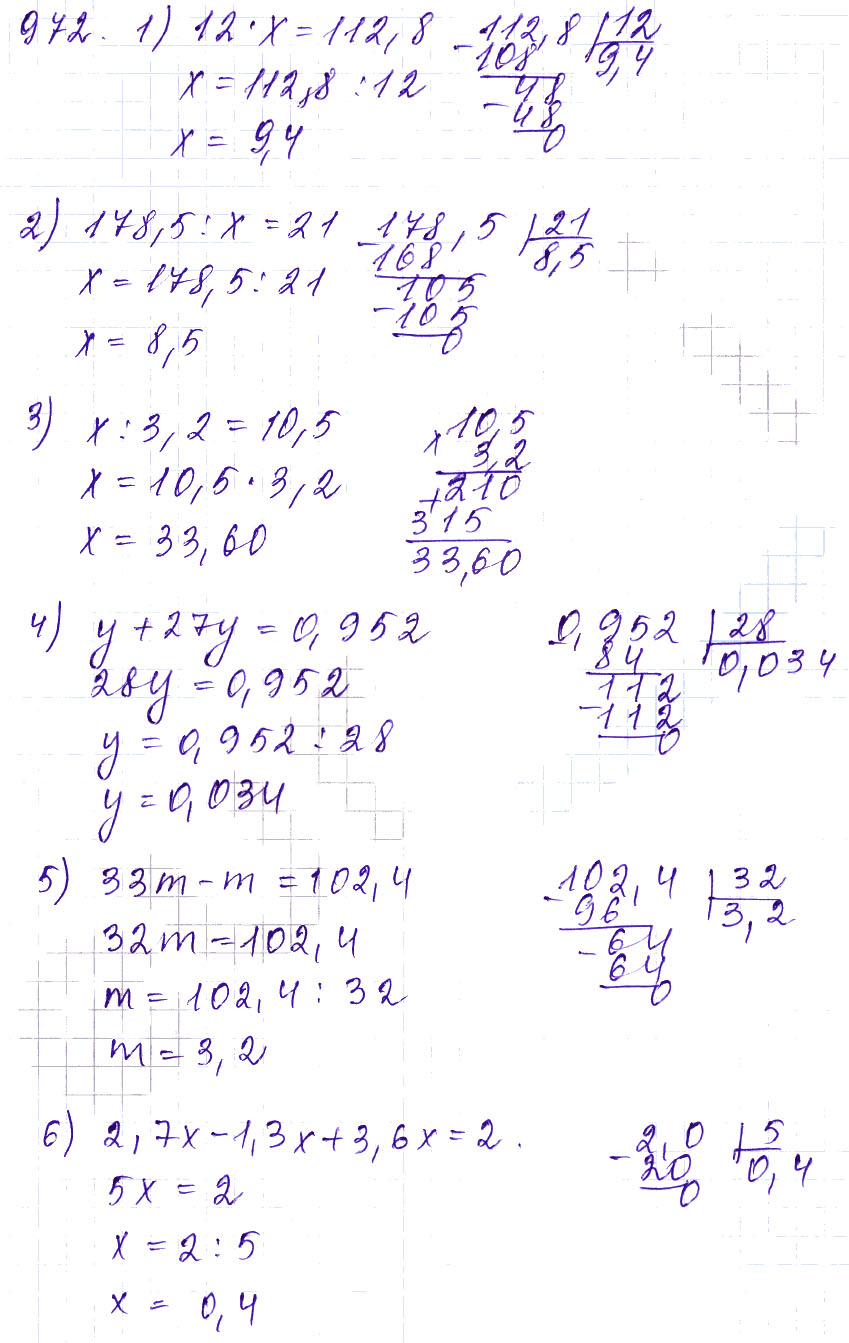 972. 1) 12 · x = 112,8
x = 112,8 : 12
x = 9,4
-112,8 |12
108 9,4
48
-48
0
2) 178,5 : x = 21
x = 178,5 : 21
x = 8,5
-178,5 |21
168 8,5
105
-105
0
3) x : 3,2 = 10,5
x = 10,5 · 3,2
x = 33,60
x 10,5
3,2
+210
315
33,60
4) y + 27y = 0,952
28y = 0,952
y = 0,952 : 28
y = 0,034
-0,952 |28
84 0,034
112
-112
0
5) 33m - m = 102,4
32m = 102,4
m = 102,4 : 32
m = 3,2
-102,4 |32
96 3,2
-64
64
0
6) 2,7x - 1,3x + 3,6x = 2.
5x = 2
x = 2 : 5
x = 0,4
-2,0 |5
20 0,4
0